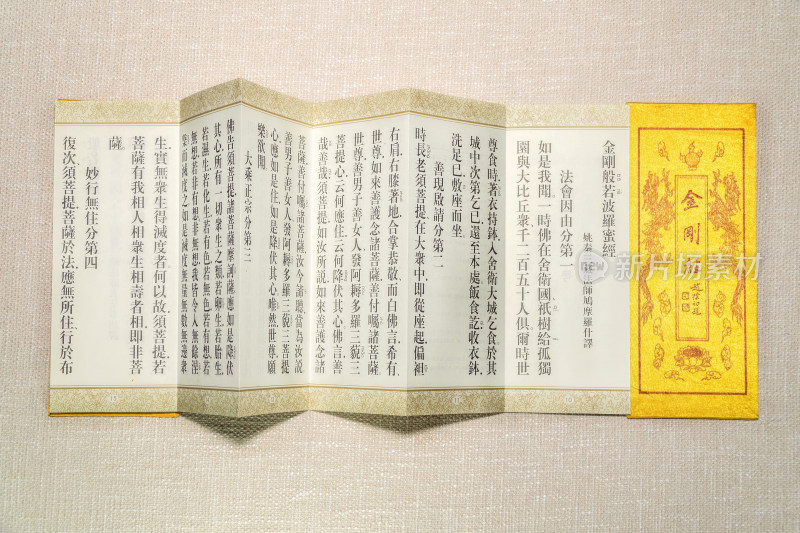 金剛
金剛般若波羅蜜經
姚秦
師鳩摩羅什譯
法會因由分第一
如是我聞一時佛在舍衛國祇樹給孤獨
園與大比丘衆千二百五十人俱爾時世
尊食時著衣持鉢入舍衛大城乞食於其
城中次第乞已還至本處飯食訖收衣鉢
洗足已敷座而坐
善現啟請分第二
時長老須菩提在大衆中即從座起偏袒
右肩右膝著地合掌恭敬而白佛言希有
世尊如來善護念諸菩薩善付囑諸菩薩
世尊善男子善女人發阿耨多羅三藐三
菩提心云何應住云何降伏其心佛言善
哉善哉須菩提如汝所說如來善護念諸
菩薩善付囑諸菩薩汝今諦聽當為汝說
善男子善女人發阿耨多羅三藐三菩提
心應如是住如是降伏其心唯然世尊願
樂欲聞
大乘正宗分第三
佛告須菩提諸菩薩摩訶薩應如是降伏
其心所有一切衆生之類若卵生若胎生
若濕生若化生若有色若無色若有想若
無想若非有想非無想我皆令入無餘涅
槃而滅度之如是滅度無量無數無邊衆
生實無衆生得滅度者何以故須菩提若
菩薩有我相人相衆生相壽者相即非菩
薩
妙行無住分第四
復次須菩提菩薩於法應無所住行於布